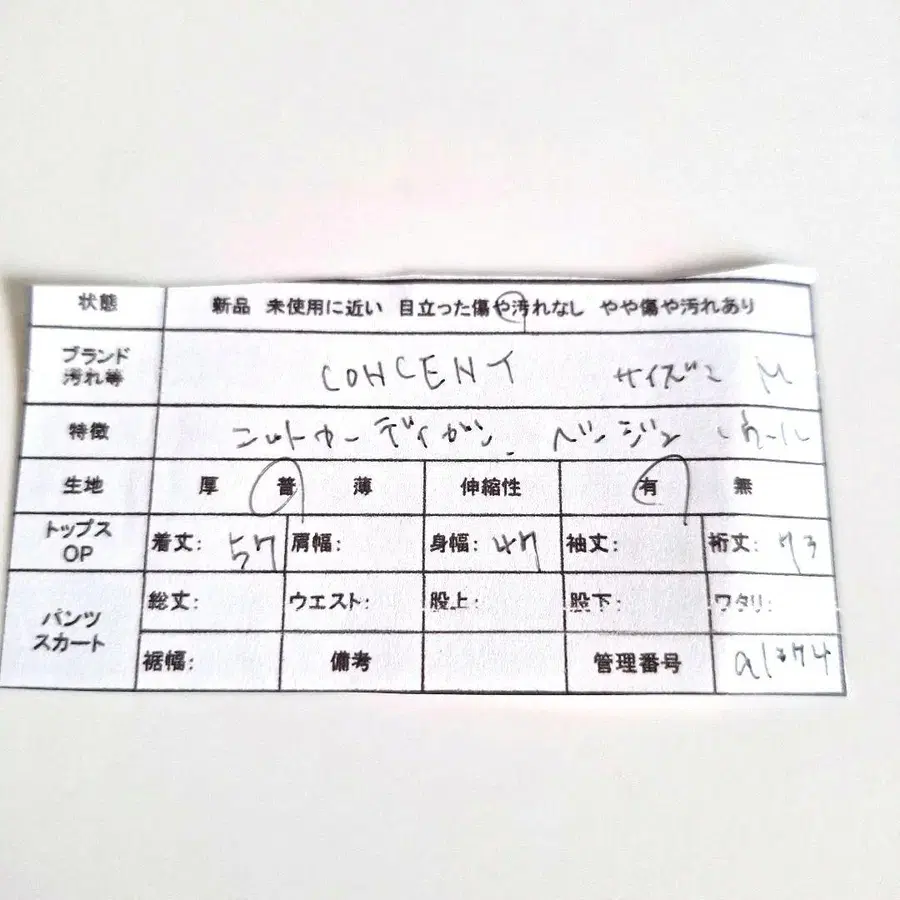 状態 新品 未使用に近い 目立った傷や汚れなし やや傷や汚れあり
ブランド 汚れ等 CONCENT サイズ M
特徴 ニットカーディガン ベージュ ウール
生地 厚 普 薄 伸縮性 有 無
トップス OP 着丈: 57 肩幅: 身幅: 47 袖丈: 裄丈: 73
パンツ スカート 総丈: ウエスト: 股上: 股下: ワタリ:
裾幅: 備考 管理番号